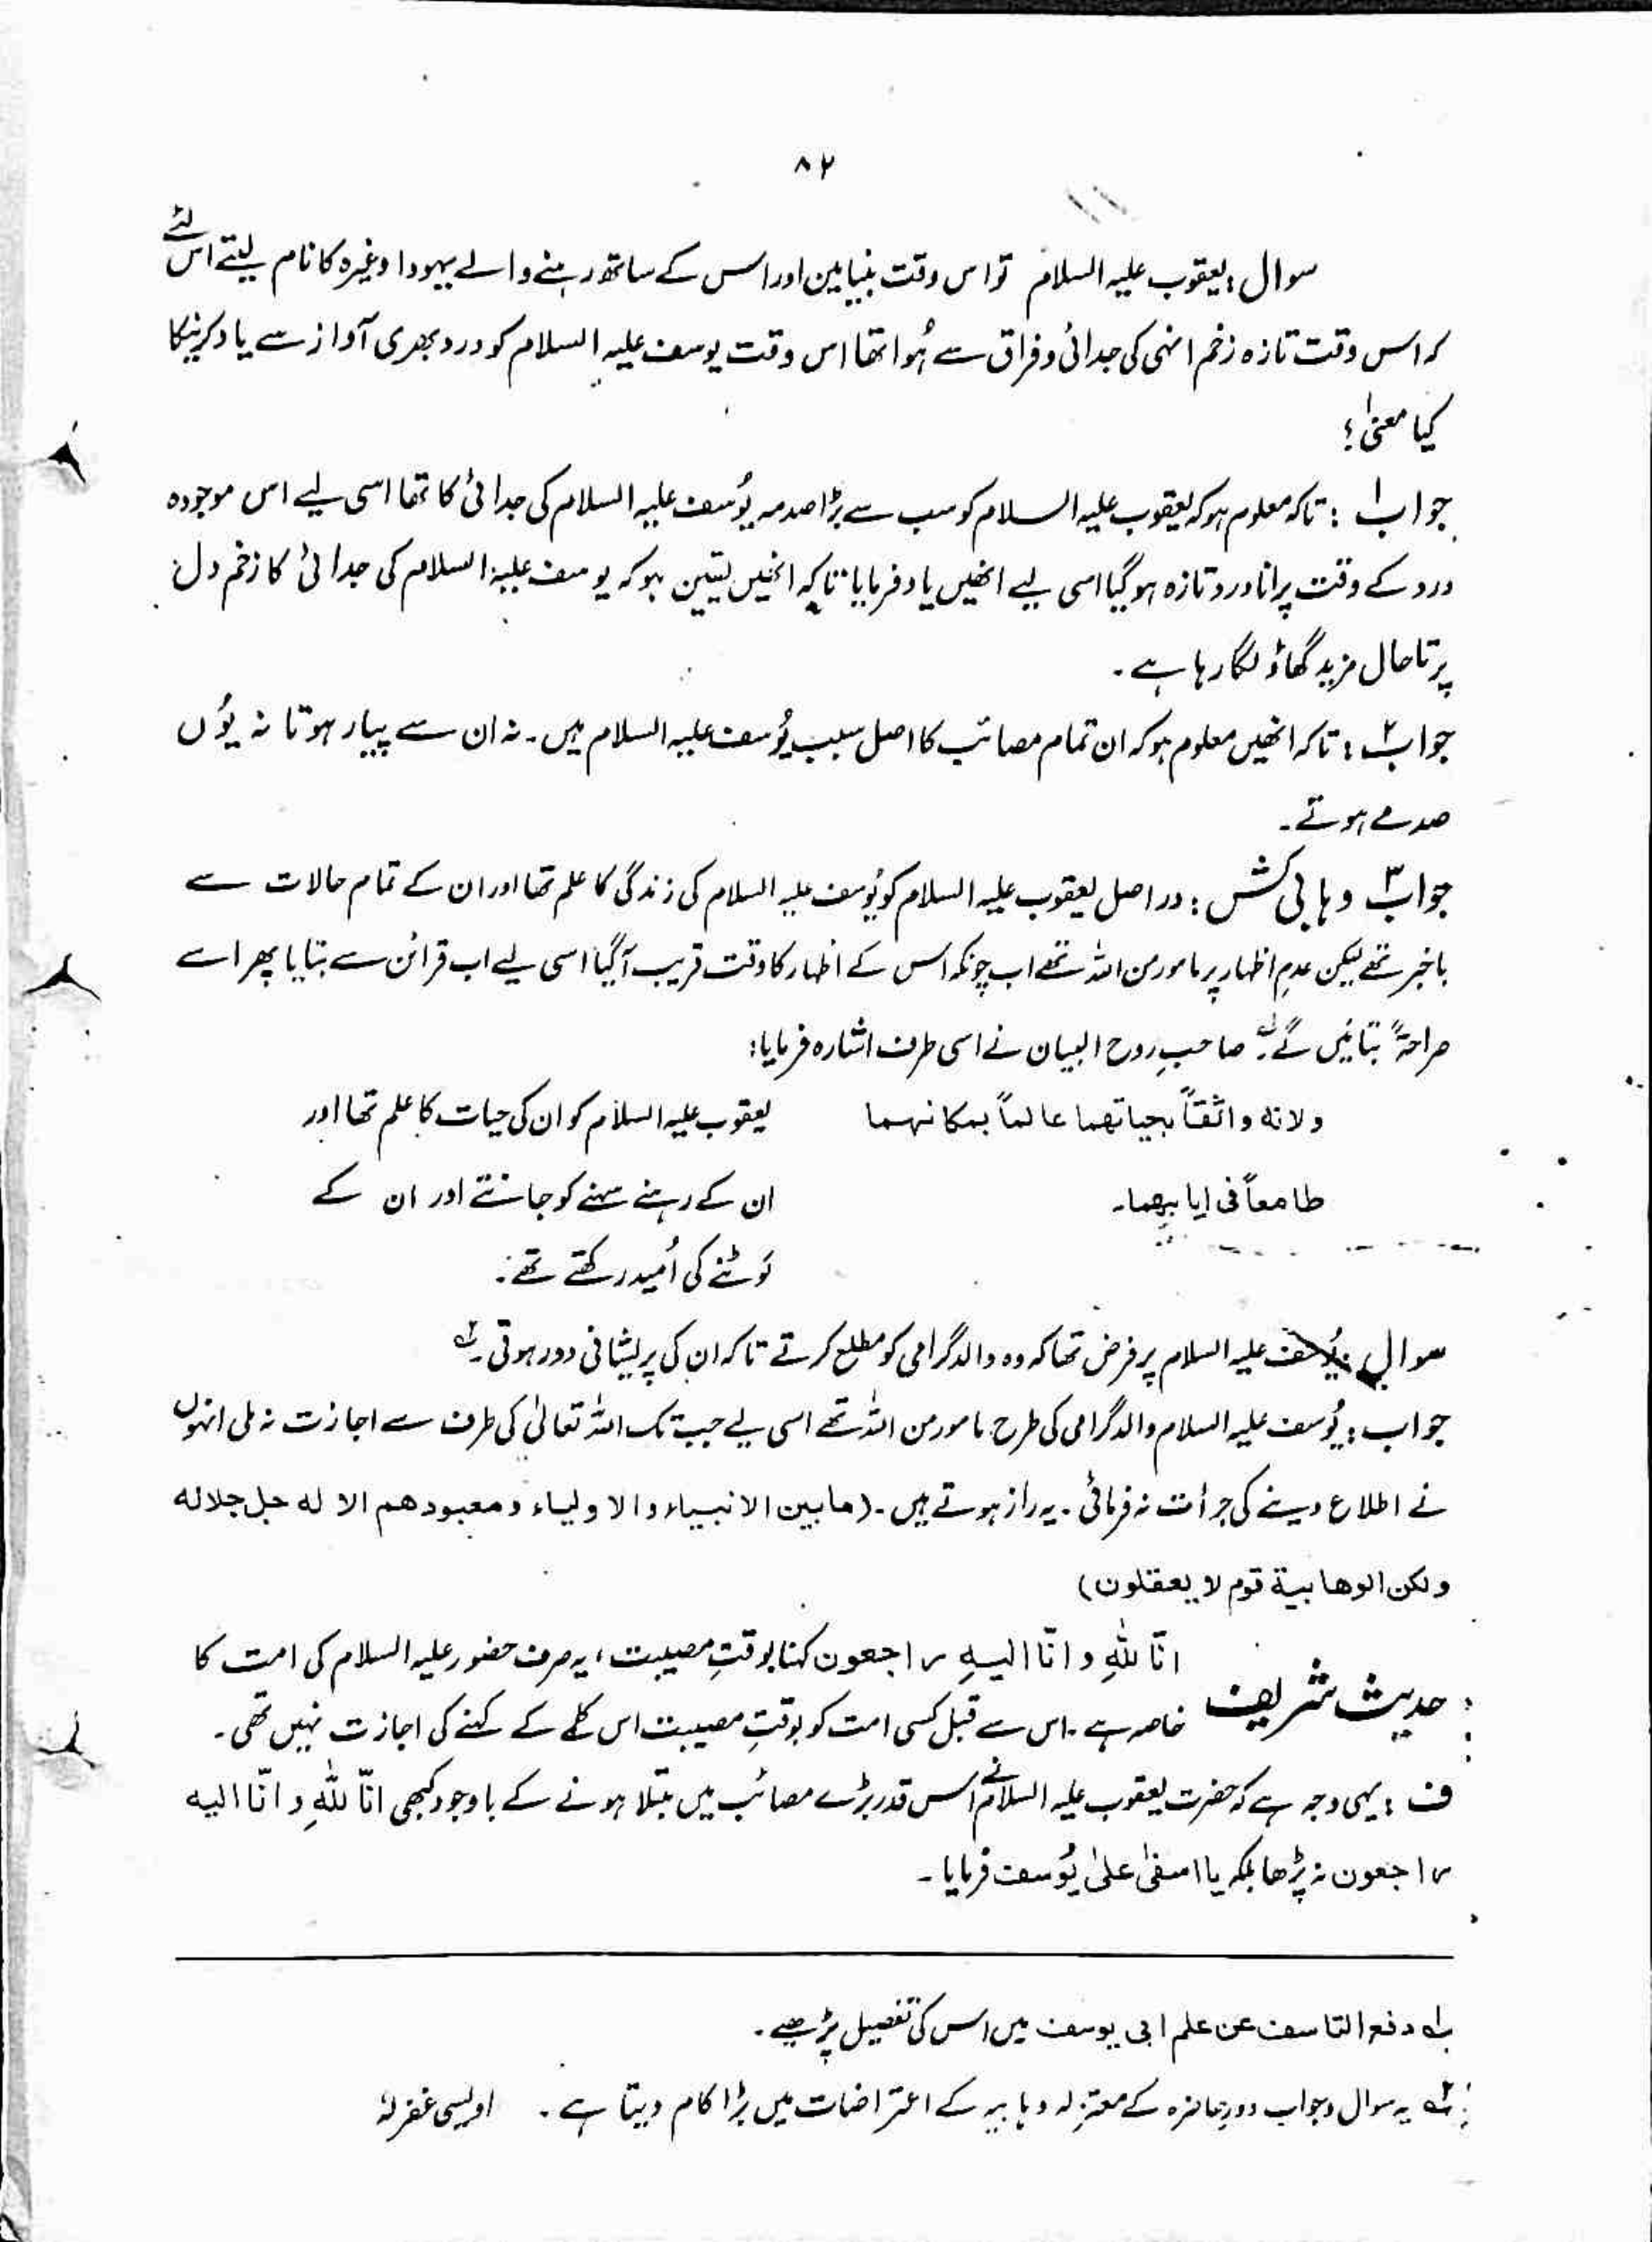 ۸۲
سوال : یعقوب علیہ السلام تو اس وقت بنیامین اور اس کے ساتھ رہنے والے یہودا وغیرہ کا نام لیتے اس لئے
کہ اس وقت تازہ زخم انہی کی جدائی و فراق سے ہُوا تھا اس وقت یوسف علیہ السلام کو درد بھری آواز سے یاد کرنیکا
کیا معنیٰ ؟
جواب ۱ : تاکہ معلوم ہو کہ یعقوب علیہ السلام کو سب سے بڑا صدمہ یُوسف علیہ السلام کی جدائی کا تھا اسی لیے اس موجودہ
درد کے وقت پرانا درد تازہ ہو گیا اسی لیے انھیں یاد فرمایا تاکہ انھیں یقین ہو کہ یوسف علیہ السلام کی جدائی کا زخم دل
پر تاحال مزید گھاؤ لگا رہا ہے ۔
جواب ۲ : تاکہ انھیں معلوم ہو کہ ان تمام مصائب کا اصل سبب یُوسف علیہ السلام ہیں ۔ نہ ان سے پیار ہوتا نہ یُوں
صدمے ہوتے ۔
جواب ۳ وہابی کُش : در اصل یعقوب علیہ السلام کو یُوسف علیہ السلام کی زندگی کا علم تھا اور ان کے تمام حالات سے
باخبر تھے لیکن عدمِ اظہار پر مامور من اللہ تھے اب چونکہ اس کے اظہار کا وقت قریب آگیا اسی لیے اب قرائن سے بتایا پھر اسے
صراحۃً بتائیں گے ۔ۂ صاحبِ روح البیان نے اسی طرف اشارہ فرمایا :
ولانه واثقاً بحیاتهما عالماً بمکانهما یعقوب علیہ السلام کو ان کی حیات کا علم تھا اور
طامعاً فی ایابهما۔ ان کے رہنے سہنے کو جانتے اور ان کے
لَوٹنے کی اُمید رکھتے تھے ۔
سوال : یُوسف علیہ السلام پر فرض تھا کہ وہ والد گرامی کو مطلع کرتے تاکہ ان کی پریشانی دور ہوتی ۔۲
جواب : یُوسف علیہ السلام والد گرامی کی طرح مامور من اللہ تھے اسی لیے جب تک اللہ تعالیٰ کی طرف سے اجازت نہ ملی انہوں
نے اطلاع دینے کی جرأت نہ فرمائی ۔ یہ راز ہوتے ہیں ۔ (مابین الانبیاء والاولیاء ومعبودهم الا له جل جلاله
ولکن الوهابیة قوم لا یعقلون)
حدیث شریف انّا للّٰهِ و انّا الیهِ راجعون کہنا بوقتِ مصیبت ، یہ صرف حضور علیہ السلام کی امت کا
خاصہ ہے ۔ اس سے قبل کسی امت کو بوقتِ مصیبت اس کلمے کے کہنے کی اجازت نہیں تھی ۔
ف : یہی وجہ ہے کہ حضرت یعقوب علیہ السلام نے اس قدر بڑے مصائب میں مبتلا ہونے کے باوجود کبھی انّا للّٰهِ و انّا الیه
راجعون نہ پڑھا بلکہ یا اسفیٰ علیٰ یُوسف فرمایا ۔
۱ دفع التاسف عن علم ابی یوسف میں اس کی تفصیل پڑھیے ۔
۲ یہ سوال و جواب دورِ حاضرہ کے معتزلہ وہابیہ کے اعتراضات میں بڑا کام دیتا ہے ۔ اویسی غفرلہٗ